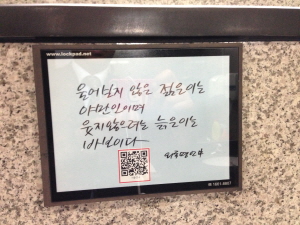 www.lockpad.net
울어보지 않은 젊은이는
야만인이며
웃지않으려는 늙은이는
바보이다